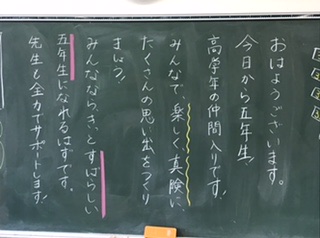 おはようございます。
今日から五年生!
高学年の仲間入りです!
みんなで、楽しく、真険に、
たくさんの思い出をつくり
ましょう!
みんななら、きっとすばらしい
五年生になれるはずです。
先生も全力でサポートします!